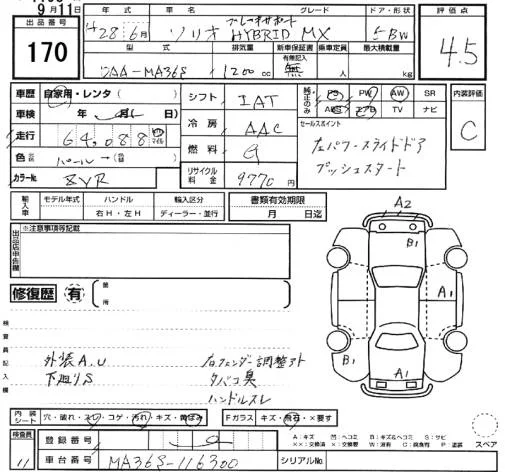 9月11日
出品番号
170
年式 車名 グレード ドア・形状
H28年6月 ソリオ HYBRID MX 5BW
型式 排気量 新車保証書 乗車定員 最大積載量
有無記入
DAA-MA36S 1200cc 無 人 kg
評価点
4.5
車歴 自家用・レンタ( )
車検 年 月( 日)
走行 64,088 km マイル
色 パール→(色替 )
カラーNo. ZVR
シフト IAT
冷房 AAC
燃料 G
リサイクル料金 9770円
純正のみ PS PW AW SR
ABS エアB TV ナビ
セールスポイント
左パワースライドドア
プッシュスタート
内装評価
C
輸入車 モデル年式 ハンドル 輸入区分
右H・左H ディーラー・並行
書類有効期限
月 日迄
出品店申告欄
※注意事項等記載
修復歴 有 箇所
検査員記入欄
外装A.U
下廻りS
右フェンダー調整アト
タバコ臭
ハンドルスレ
A2
B1
A1
B1
A1
内装シート 穴・破れ・スレ・コゲ・汚れ・キズ・黄ばみ
Fガラス キズ・飛石・×要す
検査員
11
登録番号
車台番号 MA36S-116300
シリアルNo.
スペア